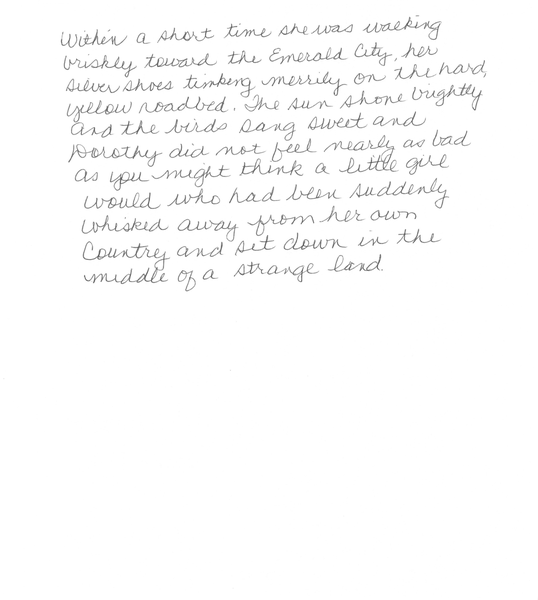 Within a short time she was walking
briskly toward the Emerald City, her
silver shoes tinking merrily on the hard,
yellow roadbed. The sun shone brightly
and the birds sang sweet and
Dorothy did not feel nearly as bad
as you might think a little girl
would who had been suddenly
whisked away from her own
Country and set down in the
middle of a strange land.